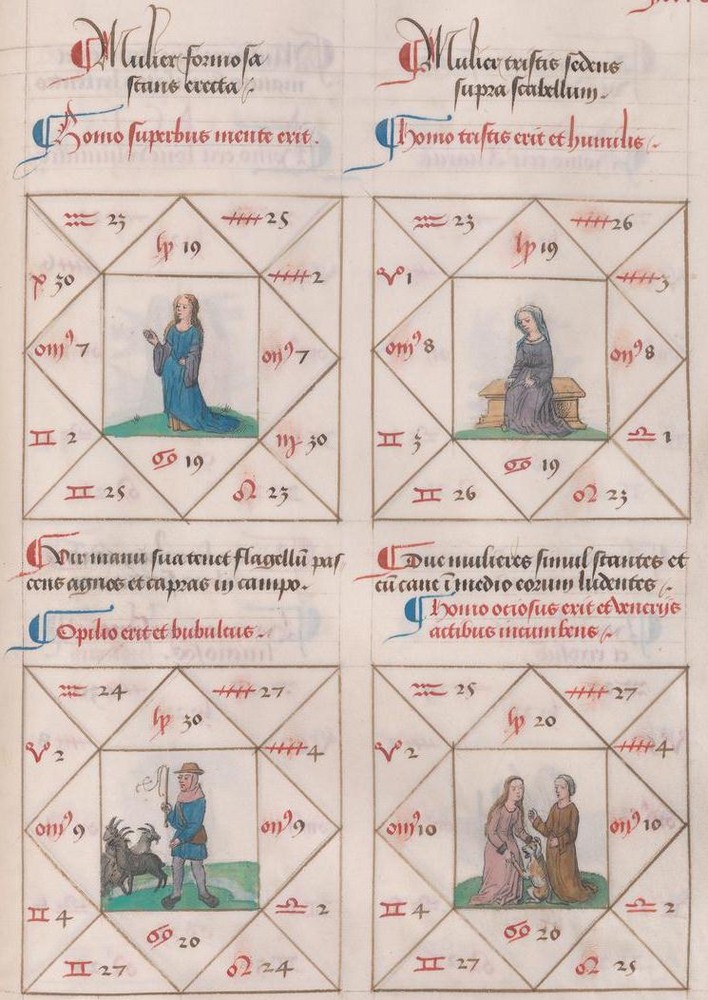 Mulier formosa
stans erecta
Homo superbus mente erit.
♒ 23
25
19
30
2
7
7
♊ 2
♍ 30
♋ 19
♊ 25
♌ 23
Mulier tristis sedens
supra scabellum.
Homo tristis erit et humilis
♒ 23
26
19
♈ 1
3
8
8
♊ 3
♎ 1
♋ 19
♊ 26
♌ 23
Vir manu sua tenet flagellū pas
cens agnos et capras in campo.
Opilio erit et bubulcus.
♒ 24
27
30
♈ 2
4
9
9
♊ 4
♎ 2
♋ 20
♊ 27
♌ 24
Due mulieres simul stantes et
cū cane ī medio eorum ludentes
Homo ociosus erit et venerijs
actibus incumbens
♒ 25
27
20
♈ 2
4
10
10
♊ 4
♎ 2
♋ 20
♊ 27
♌ 25